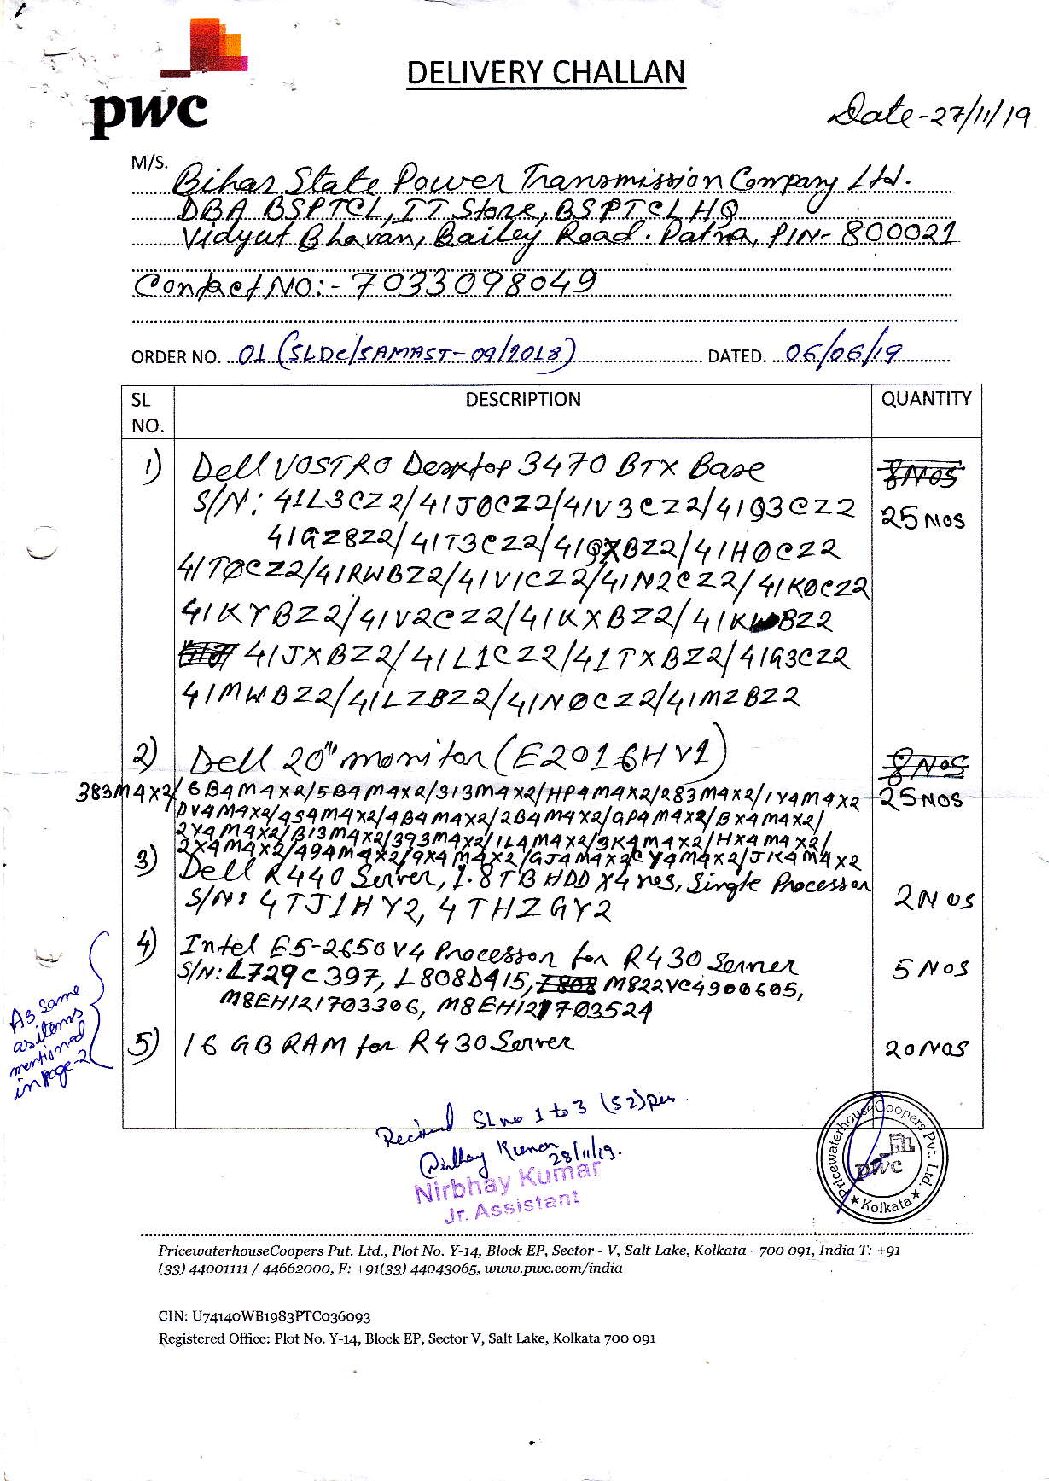 pwc
DELIVERY CHALLAN
Date-27/11/19
M/S. Bihar State Power Transmission Company Ltd.
DBA BSPTCL, IT Store, BSPTCL HQ
Vidyut Bhavan, Bailey Road. Patna, PIN- 800021
Contact NO:- 7033098049
ORDER NO. 01 (SLDC/SAMAST-09/2018) DATED. 06/06/19
SL NO. DESCRIPTION QUANTITY
1) Dell VOSTRO Desktop 3470 BTX Base 8 NOS
S/N: 41L3CZ2/41J0CZ2/41V3CZ2/41Q3CZ2 25 NOS
41GZ8Z2/41T3CZ2/41QXBZ2/41H0CZ2
41TØCZ2/41RWBZ2/41V1CZ2/41N2CZ2/41K0CZ2
41KYBZ2/41V2CZ2/41KXBZ2/41KWBZ2
41JXBZ2/41L1CZ2/41TXBZ2/41G3CZ2
41MWBZ2/41LZBZ2/41NØCZ2/41MZBZ2
2) Dell 20" monitor (E2016HV1) 8 NOS
383M4X2/6B4M4X2/5B4M4X2/313M4X2/HP4M4X2/283M4X2/1Y4M4X2 25 NOS
DV4M4X2/4S4M4X2/4B4M4X2/2B4M4X2/GP4M4X2/BX4M4X2/
2Y4M4X2/B13M4X2/393M4X2/1L4M4X2/3K4M4X2/HX4M4X2/
2X4M4X2/494M4X2/9X4M4X2/GJ4M4X2/CY4M4X2/JK4M4X2
3) Dell R440 Server, 1.8TB HDD X4 nos, Single Processor
S/N: 4TJ1HY2, 4THZGY2 2 NOS
4) Intel E5-2650V4 Processor for R430 Server
S/N: L729C397, L808D415, M822VC4900605, 5 NOS
M8EH121703306, M8EH121703524
5) 16 GB RAM for R430 Server 20 NOS
As same
as items
mentioned
in page-2
Received SL no 1 to 3 (52) pcs
Nirbhay Kumar
28/11/19.
Nirbhay Kumar
Jr. Assistant
PricewaterhouseCoopers Pvt. Ltd.
pwc
★ Kolkata ★
PricewaterhouseCoopers Pvt. Ltd., Plot No. Y-14, Block EP, Sector - V, Salt Lake, Kolkata - 700 091, India T: +91
(33) 44001111 / 44662000, F: +91(33) 44043065, www.pwc.com/india
CIN: U74140WB1983PTC036093
Registered Office: Plot No. Y-14, Block EP, Sector V, Salt Lake, Kolkata 700 091